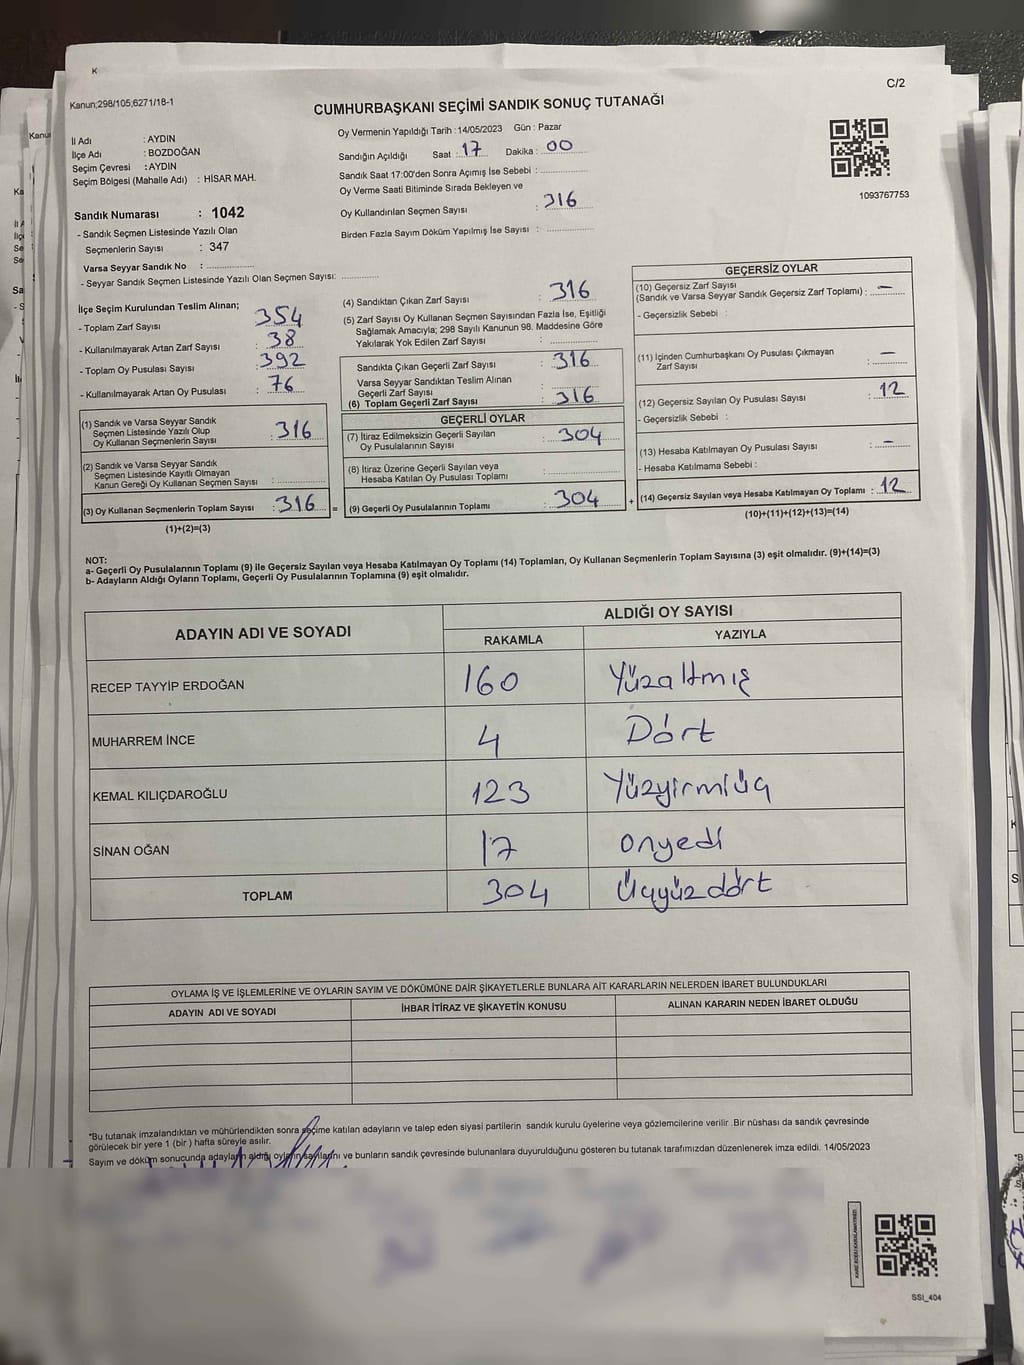 K
C/2
Kanun;298/105;6271/18-1
CUMHURBAŞKANI SEÇİMİ SANDIK SONUÇ TUTANAĞI
İl Adı : AYDIN
İlçe Adı : BOZDOĞAN
Seçim Çevresi : AYDIN
Seçim Bölgesi (Mahalle Adı) : HİSAR MAH.
Oy Vermenin Yapıldığı Tarih :14/05/2023 Gün : Pazar
Sandığın Açıldığı Saat : 17 Dakika : 00
Sandık Saat 17:00'den Sonra Açımış İse Sebebi :
Oy Verme Saati Bitiminde Sırada Bekleyen ve
Oy Kullandırılan Seçmen Sayısı : 316
Birden Fazla Sayım Döküm Yapılmış İse Sayısı :
1093767753
Sandık Numarası : 1042
- Sandık Seçmen Listesinde Yazılı Olan
Seçmenlerin Sayısı : 347
Varsa Seyyar Sandık No :
- Seyyar Sandık Seçmen Listesinde Yazılı Olan Seçmen Sayısı:
İlçe Seçim Kurulundan Teslim Alınan;
- Toplam Zarf Sayısı : 354
- Kullanılmayarak Artan Zarf Sayısı : 38
- Toplam Oy Pusulası Sayısı : 392
- Kullanılmayarak Artan Oy Pusulası : 76
(1) Sandık ve Varsa Seyyar Sandık
Seçmen Listesinde Yazılı Olup
Oy Kullanan Seçmenlerin Sayısı : 316
(2) Sandık ve Varsa Seyyar Sandık
Seçmen Listesinde Kayıtlı Olmayan
Kanun Gereği Oy Kullanan Seçmen Sayısı :
(3) Oy Kullanan Seçmenlerin Toplam Sayısı : 316
(1)+(2)=(3)
(4) Sandıktan Çıkan Zarf Sayısı : 316
(5) Zarf Sayısı Oy Kullanan Seçmen Sayısından Fazla İse, Eşitliği
Sağlamak Amacıyla; 298 Sayılı Kanunun 98. Maddesine Göre
Yakılarak Yok Edilen Zarf Sayısı :
Sandıkta Çıkan Geçerli Zarf Sayısı : 316
Varsa Seyyar Sandıktan Teslim Alınan
Geçerli Zarf Sayısı :
(6) Toplam Geçerli Zarf Sayısı : 316
GEÇERLİ OYLAR
(7) İtiraz Edilmeksizin Geçerli Sayılan
Oy Pusulalarının Sayısı : 304
(8) İtiraz Üzerine Geçerli Sayılan veya
Hesaba Katılan Oy Pusulası Toplamı :
= (9) Geçerli Oy Pusulalarının Toplamı : 304 +
GEÇERSİZ OYLAR
(10) Geçersiz Zarf Sayısı
(Sandık ve Varsa Seyyar Sandık Geçersiz Zarf Toplamı) : –
- Geçersizlik Sebebi :
(11) İçinden Cumhurbaşkanı Oy Pusulası Çıkmayan
Zarf Sayısı : –
(12) Geçersiz Sayılan Oy Pusulası Sayısı : 12
- Geçersizlik Sebebi :
(13) Hesaba Katılmayan Oy Pusulası Sayısı : –
- Hesaba Katılmama Sebebi :
(14) Geçersiz Sayılan veya Hesaba Katılmayan Oy Toplamı : 12
(10)+(11)+(12)+(13)=(14)
NOT:
a- Geçerli Oy Pusulalarının Toplamı (9) ile Geçersiz Sayılan veya Hesaba Katılmayan Oy Toplamı (14) Toplamları, Oy Kullanan Seçmenlerin Toplam Sayısına (3) eşit olmalıdır. (9)+(14)=(3)
b- Adayların Aldığı Oyların Toplamı, Geçerli Oy Pusulalarının Toplamına (9) eşit olmalıdır.
ADAYIN ADI VE SOYADI ALDIĞI OY SAYISI
RAKAMLA YAZIYLA
RECEP TAYYİP ERDOĞAN 160 Yüzaltmış
MUHARREM İNCE 4 Dört
KEMAL KILIÇDAROĞLU 123 Yüzyirmiüç
SİNAN OĞAN 17 onyedi
TOPLAM 304 Üçyüzdört
OYLAMA İŞ VE İŞLEMLERİNE VE OYLARIN SAYIM VE DÖKÜMÜNE DAİR ŞİKAYETLERLE BUNLARA AİT KARARLARIN NELERDEN İBARET BULUNDUKLARI
ADAYIN ADI VE SOYADI İHBAR İTİRAZ VE ŞİKAYETİN KONUSU ALINAN KARARIN NEDEN İBARET OLDUĞU
*Bu tutanak imzalandıktan ve mühürlendikten sonra seçime katılan adayların ve talep eden siyasi partilerin sandık kurulu üyelerine veya gözlemcilerine verilir .Bir nüshası da sandık çevresinde
görülecek bir yere 1 (bir ) hafta süreyle asılır.
Sayım ve döküm sonucunda adayların aldığı oyların sayılarını ve bunların sandık çevresinde bulunanlara duyurulduğunu gösteren bu tutanak tarafımızdan düzenlenerek imza edildi. 14/05/2023
SSI_404